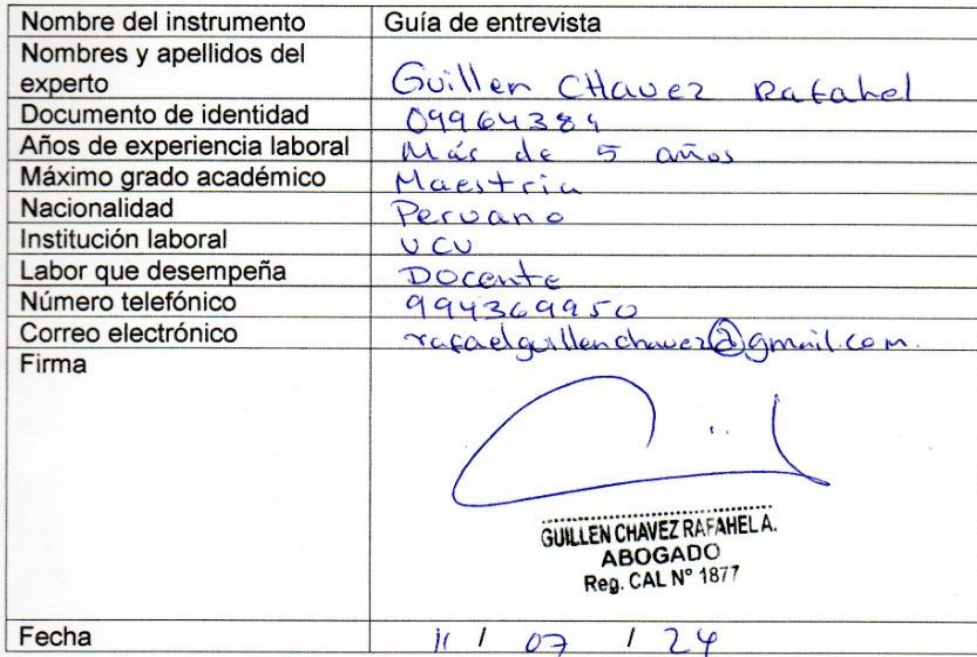 Nombre del instrumento Guía de entrevista
Nombres y apellidos del
experto Guillen CHavez Rafahel
Documento de identidad 09964384
Años de experiencia laboral Más de 5 años
Máximo grado académico Maestria
Nacionalidad Peruano
Institución laboral UCV
Labor que desempeña Docente
Número telefónico 994369950
Correo electrónico rafaelguillenchavez@gmail.com.
Firma
GUILLEN CHAVEZ RAFAHEL A.
ABOGADO
Reg. CAL N° 1877
Fecha 11 / 07 / 24